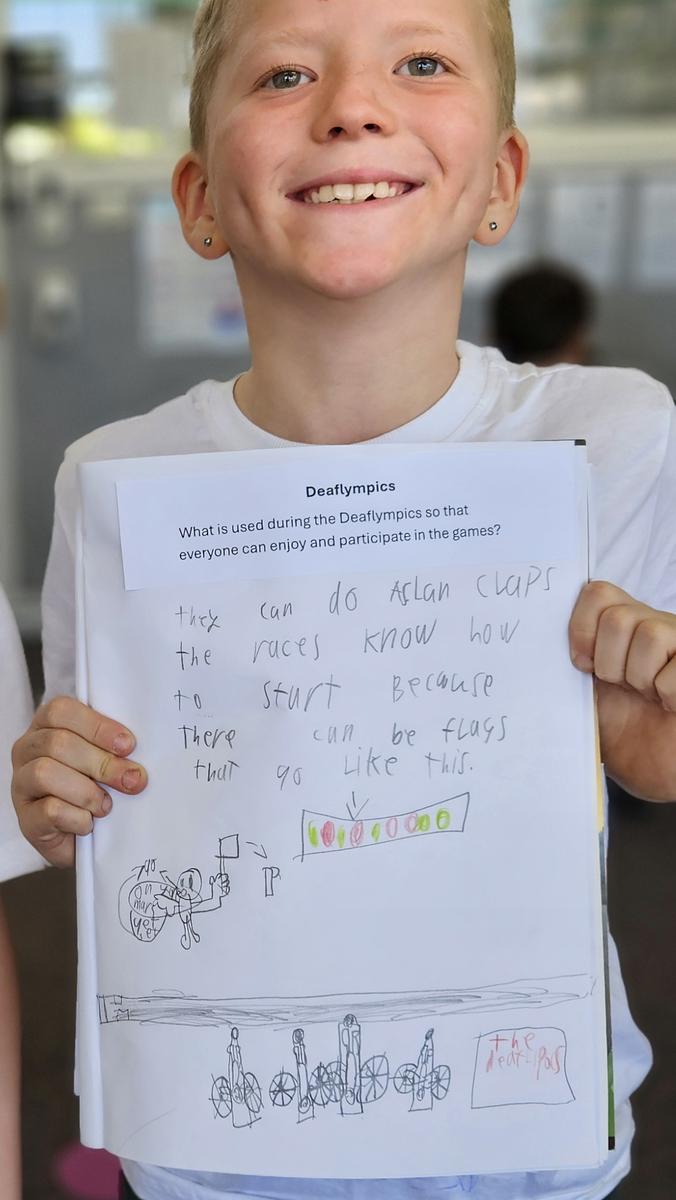 Deaflympics
What is used during the Deaflympics so that
everyone can enjoy and participate in the games?
they can do Aslan claps
the races know how
to start Because
There can be flags
that go like this.
go
On
mark
get
set
the